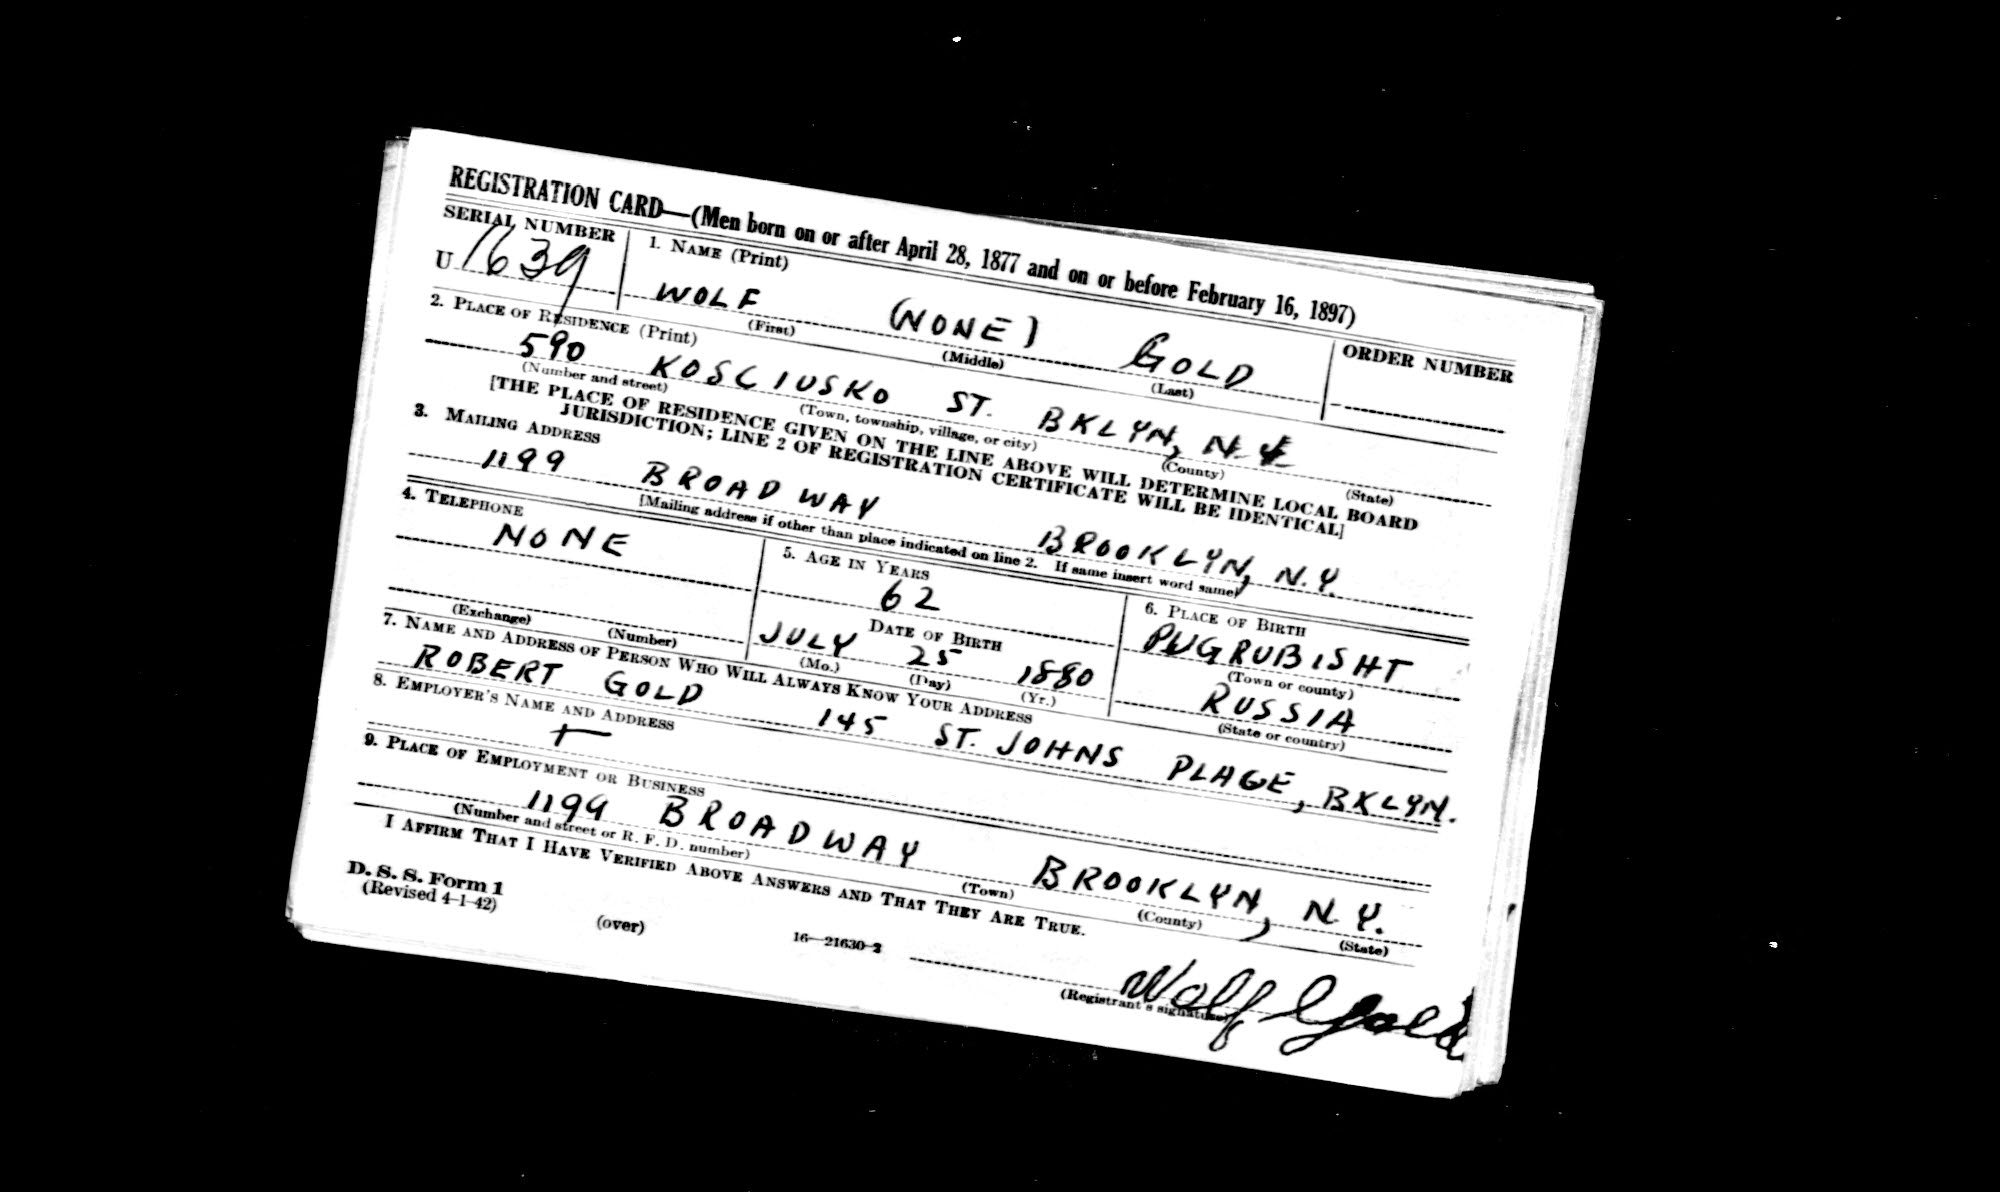 REGISTRATION CARD—(Men born on or after April 28, 1877 and on or before February 16, 1897)
SERIAL NUMBER
U 1639
1. NAME (Print)
WOLF (NONE) GOLD
(First) (Middle) (Last)
ORDER NUMBER
2. PLACE OF RESIDENCE (Print)
590 KOSCIUSKO ST. BKLYN, N.Y.
(Number and street) (Town, township, village, or city) (County) (State)
[THE PLACE OF RESIDENCE GIVEN ON THE LINE ABOVE WILL DETERMINE LOCAL BOARD
JURISDICTION; LINE 2 OF REGISTRATION CERTIFICATE WILL BE IDENTICAL]
3. MAILING ADDRESS
1199 BROADWAY BROOKLYN, N.Y.
[Mailing address if other than place indicated on line 2. If same insert word same]
4. TELEPHONE
NONE
(Exchange) (Number)
5. AGE IN YEARS
62
DATE OF BIRTH
JULY 25 1880
(Mo.) (Day) (Yr.)
6. PLACE OF BIRTH
PUGRUBISHT
(Town or county)
RUSSIA
(State or country)
7. NAME AND ADDRESS OF PERSON WHO WILL ALWAYS KNOW YOUR ADDRESS
ROBERT GOLD 145 ST. JOHNS PLACE, BKLYN.
8. EMPLOYER'S NAME AND ADDRESS
9. PLACE OF EMPLOYMENT OR BUSINESS
1199 BROADWAY BROOKLYN, N.Y.
(Number and street or R. F. D. number) (Town) (County) (State)
I AFFIRM THAT I HAVE VERIFIED ABOVE ANSWERS AND THAT THEY ARE TRUE.
D. S. S. Form 1
(Revised 4-1-42)
(over)
16—21630-2
Wolf Gold
(Registrant's signature)